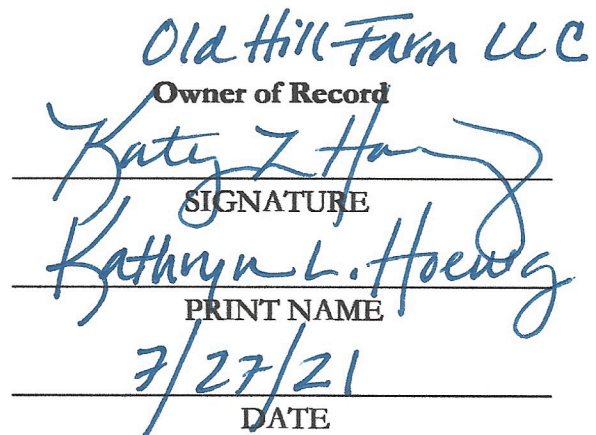 Old Hill Farm LLC
Owner of Record
Katy L
SIGNATURE
Kathryn L. Hoenig
PRINT NAME
7/27/21
DATE